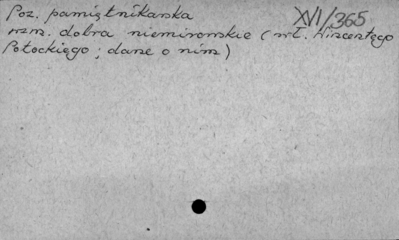 Poz. pamiętnikarska
XVI/365
wzm. dobra niemirowskie (wł. Wincentego
Potockiego; dane o nim)